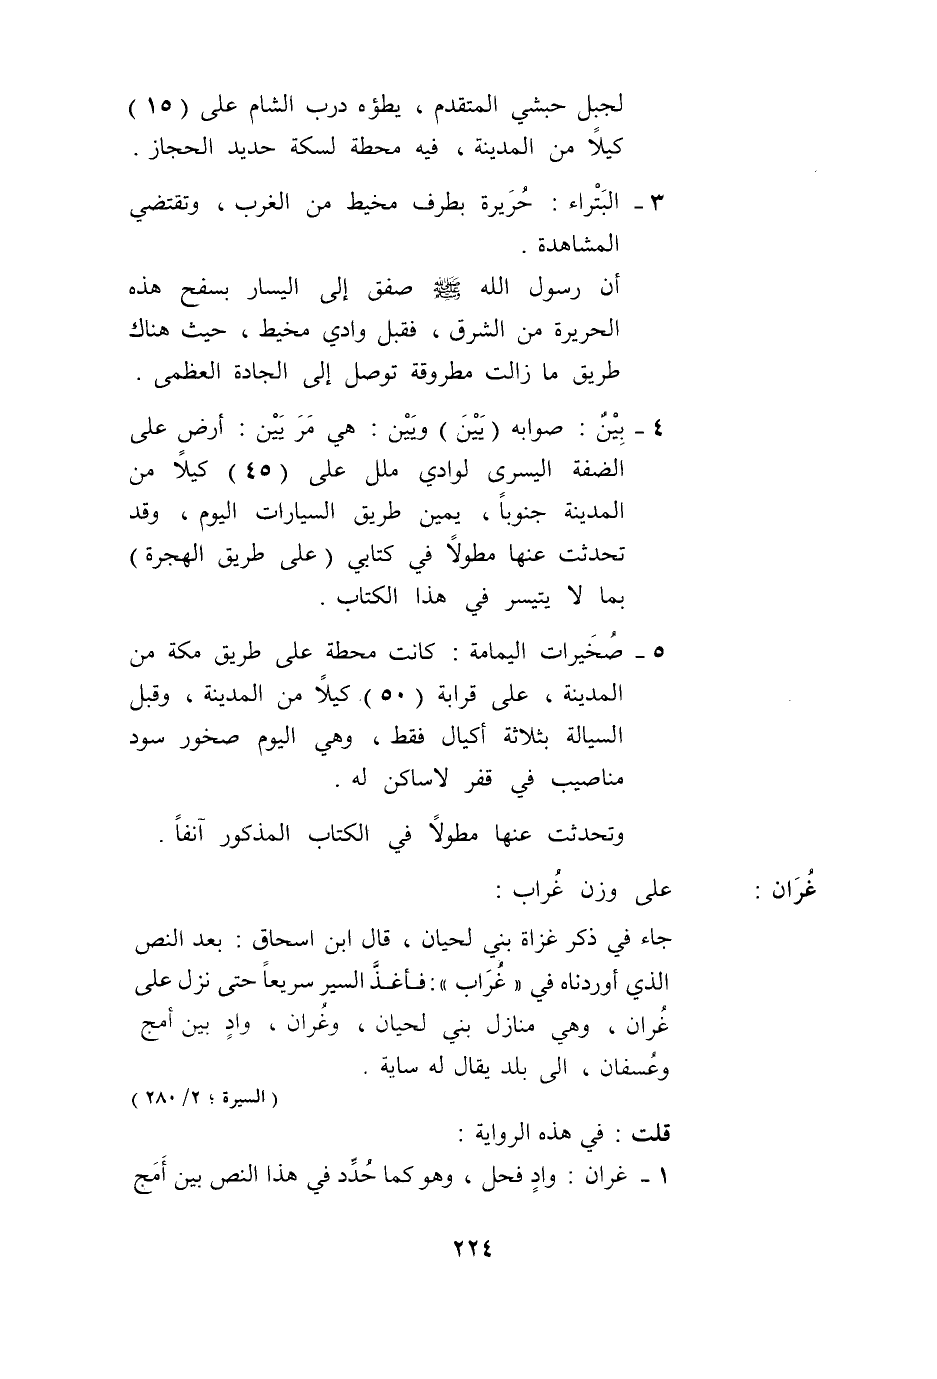 لجبل حبشي المتقدم ، يطؤه درب الشام على ( ١٥ )
كيلًا من المدينة ، فيه محطة لسكة حديد الحجاز .
٣ ـ البَتْراء : حُرَيرة بطرف مخيط من الغرب ، وتقتضي
المشاهدة .
أن رسول الله ﷺ صفق إلى اليسار بسفح هذه
الحريرة من الشرق ، فقبل وادي مخيط ، حيث هناك
طريق ما زالت مطروقة توصل إلى الجادة العظمى .
٤ ـ بِيْنٌ : صوابه ( يَيْنَ ) ويَيْن : هي مَرَ يَيْن : أرض على
الضفة اليسرى لوادي ملل على ( ٤٥ ) كيلًا من
المدينة جنوباً ، يمين طريق السيارات اليوم ، وقد
تحدثت عنها مطولًا في كتابي ( على طريق الهجرة )
بما لا يتيسر في هذا الكتاب .
٥ ـ صُخَيرات اليمامة : كانت محطة على طريق مكة من
المدينة ، على قرابة ( ٥٠ ) كيلًا من المدينة ، وقبل
السيالة بثلاثة أكيال فقط ، وهي اليوم صخور سود
مناصيب في قفر لاساكن له .
وتحدثت عنها مطولًا في الكتاب المذكور آنفاً .
غُرَان : على وزن غُراب :
جاء في ذكر غزاة بني لحيان ، قال ابن اسحاق : بعد النص
الذي أوردناه في « غُرَاب » : فـأغـذَّ السير سريعاً حتى نزل على
غُران ، وهي منازل بني لحيان ، وغُران ، وادٍ بين أمج
وعُسفان ، الى بلد يقال له ساية .
( السيرة ؛ ٢/ ٢٨٠ )
قلت : في هذه الرواية :
١ ـ غران : وادٍ فحل ، وهو كما حُدِّد في هذا النص بين أَمَج
٢٢٤